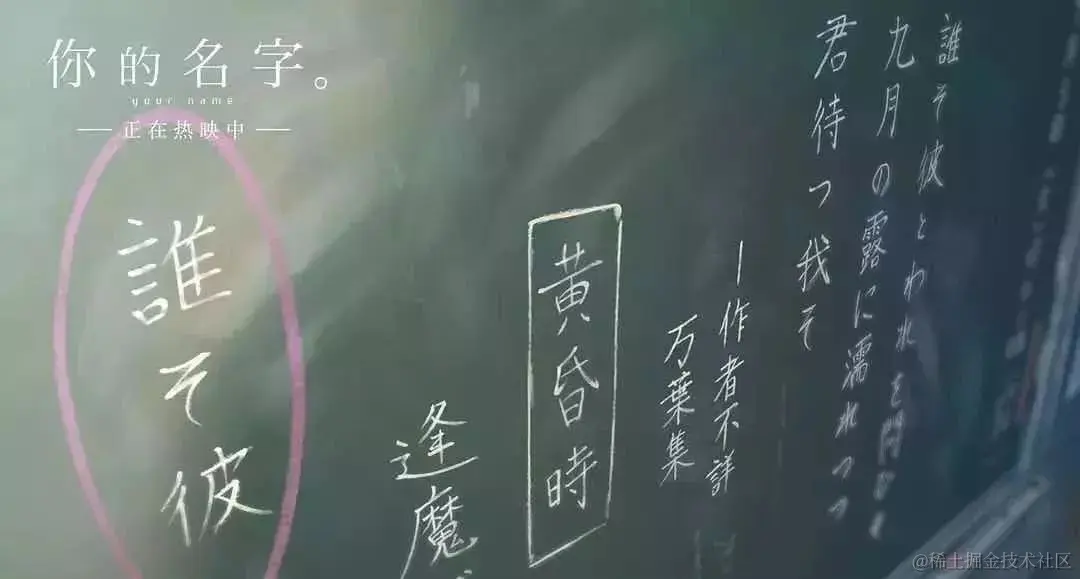 你的名字。
your name
正在热映中
誰そ彼とわれを問ひそ
九月の露に濡れつつ
君待つ我そ
ー作者不詳
万葉集
黄昏時
逢魔
誰そ彼
@稀土掘金技术社区